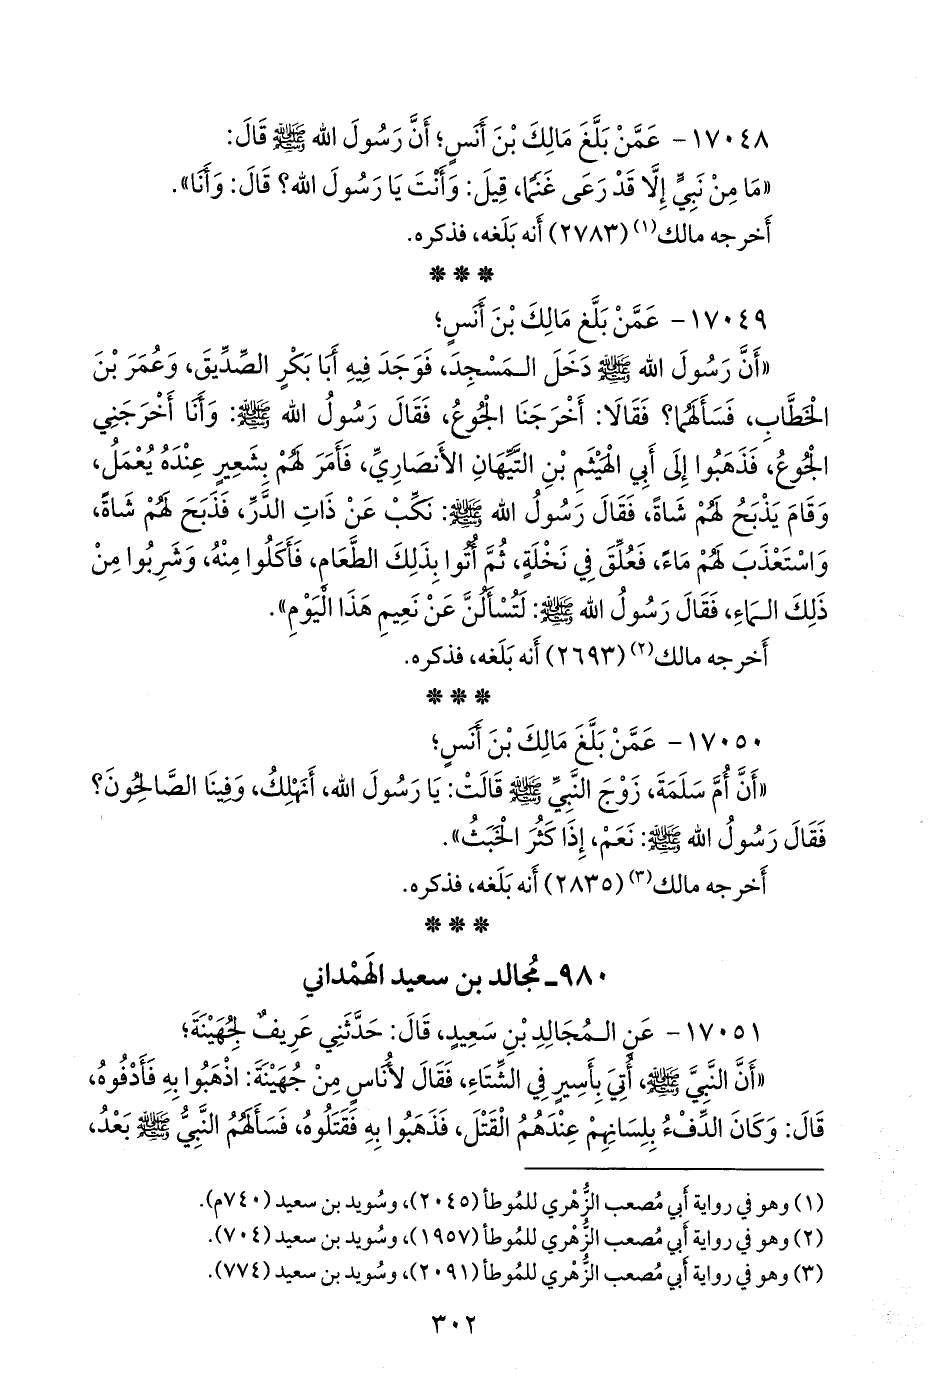 ١٧٠٤٨ - عَمَّنْ بَلَّغَ مَالِكَ بْنَ أَنَسٍ؛ أَنَّ رَسُولَ الله ﷺ قَالَ:
«مَا مِنْ نَبِيٍّ إِلَّا قَدْ رَعَى غَنَمًا، قِيلَ: وَأَنْتَ يَا رَسُولَ الله؟ قَالَ: وَأَنَا».
أخرجه مالك(١) (٢٧٨٣) أنه بَلَغه، فذكره.
* * *
١٧٠٤٩ - عَمَّنْ بَلَّغ مَالِكَ بْنَ أَنَسٍ؛
«أَنَّ رَسُولَ الله ﷺ دَخَلَ الـمَسْجِدَ، فَوَجَدَ فِيهِ أَبَا بَكْرٍ الصِّدِّيقَ، وَعُمَرَ بْنَ
الْخَطَّابِ، فَسَأَلَهُمَا؟ فَقَالَا: أَخْرَجَنَا الْجُوعُ، فَقَالَ رَسُولُ الله ﷺ: وَأَنَا أَخْرَجَنِي
الْجُوعُ، فَذَهَبُوا إِلَى أَبِي الْهَيْثَمِ بْنِ التَّيِّهَانِ الأَنصَارِيِّ، فَأَمَرَ لَهُمْ بِشَعِيرٍ عِنْدَهُ يُعْمَلُ،
وَقَامَ يَذْبَحُ لَهُمْ شَاةً، فَقَالَ رَسُولُ الله ﷺ: نَكِّبْ عَنْ ذَاتِ الدَّرِّ، فَذَبَحَ لَهُمْ شَاةً،
وَاسْتَعْذَبَ لَهُمْ مَاءً، فَعُلِّقَ فِي نَخْلَةٍ، ثُمَّ أُتُوا بِذَلِكَ الطَّعَامِ، فَأَكَلُوا مِنْهُ، وَشَرِبُوا مِنْ
ذَلِكَ الـمَاءِ، فَقَالَ رَسُولُ الله ﷺ: لَتُسْأَلُنَّ عَنْ نَعِيمِ هَذَا الْيَوْمِ».
أخرجه مالك(٢) (٢٦٩٣) أنه بَلَغه، فذكره.
* * *
١٧٠٥٠ - عَمَّنْ بَلَّغَ مَالِكَ بْنَ أَنَسٍ؛
«أَنَّ أُمَّ سَلَمَةَ، زَوْجَ النَّبِيِّ ﷺ قَالَتْ: يَا رَسُولَ الله، أَنَهْلِكُ، وَفِينَا الصَّالِحُونَ؟
فَقَالَ رَسُولُ الله ﷺ: نَعَمْ، إِذَا كَثُرَ الْخَبَثُ».
أخرجه مالك(٣) (٢٨٣٥) أنه بَلَغه، فذكره.
* * *
٩٨٠ ـ مُجالد بن سعيد الهَمْداني
١٧٠٥١ - عَنِ الـمُجَالِدِ بْنِ سَعِيدٍ، قَالَ: حَدَّثَنِي عَرِيفٌ لِجُهَيْنَةَ؛
«أَنَّ النَّبِيَّ ﷺ، أُتِيَ بِأَسِيرٍ فِي الشِّتَاءِ، فَقَالَ لأُنَاسٍ مِنْ جُهَيْنَةَ: اذْهَبُوا بِهِ فَأَدْفُوهُ،
قَالَ: وَكَانَ الدِّفْءُ بِلِسَانِهِمْ عِنْدَهُمُ الْقَتْلَ، فَذَهَبُوا بِهِ فَقَتَلُوهُ، فَسَأَلَهُمُ النَّبِيُّ ﷺ بَعْدُ،
(١) وهو في رواية أَبي مُصعب الزُّهْري للمُوطأ (٢٠٤٥)، وسُويد بن سعيد (٧٤٠م).
(٢) وهو في رواية أَبي مُصعب الزُّهْري للمُوطأ (١٩٥٧)، وسُويد بن سعيد (٧٠٤).
(٣) وهو في رواية أَبي مُصعب الزُّهْري للمُوطأ (٢٠٩١)، وسُويد بن سعيد (٧٧٤).
٣٠٢